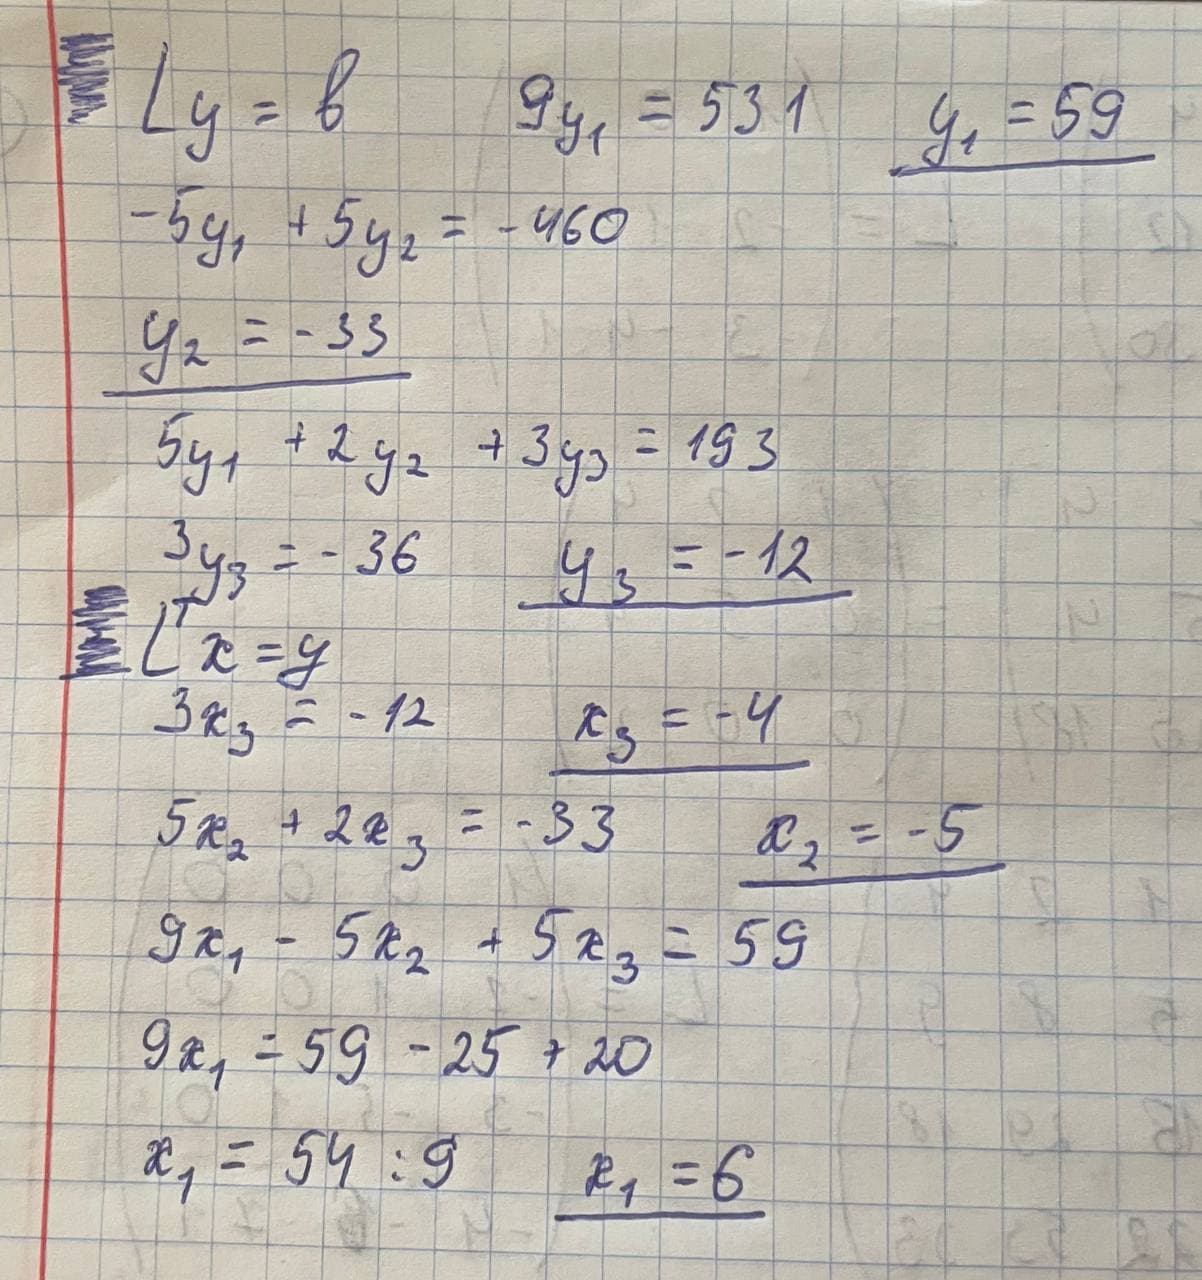 Ly = b 9y₁ = 531 y₁ = 59
-5y₁ + 5y₂ = -460
y₂ = -33
5y₁ + 2y₂ + 3y₃ = 193
3y₃ = -36 y₃ = -12
Lᵀx = y
3x₃ = -12 x₃ = -4
5x₂ + 2x₃ = -33 x₂ = -5
9x₁ - 5x₂ + 5x₃ = 59
9x₁ = 59 - 25 + 20
x₁ = 54 : 9 x₁ = 6